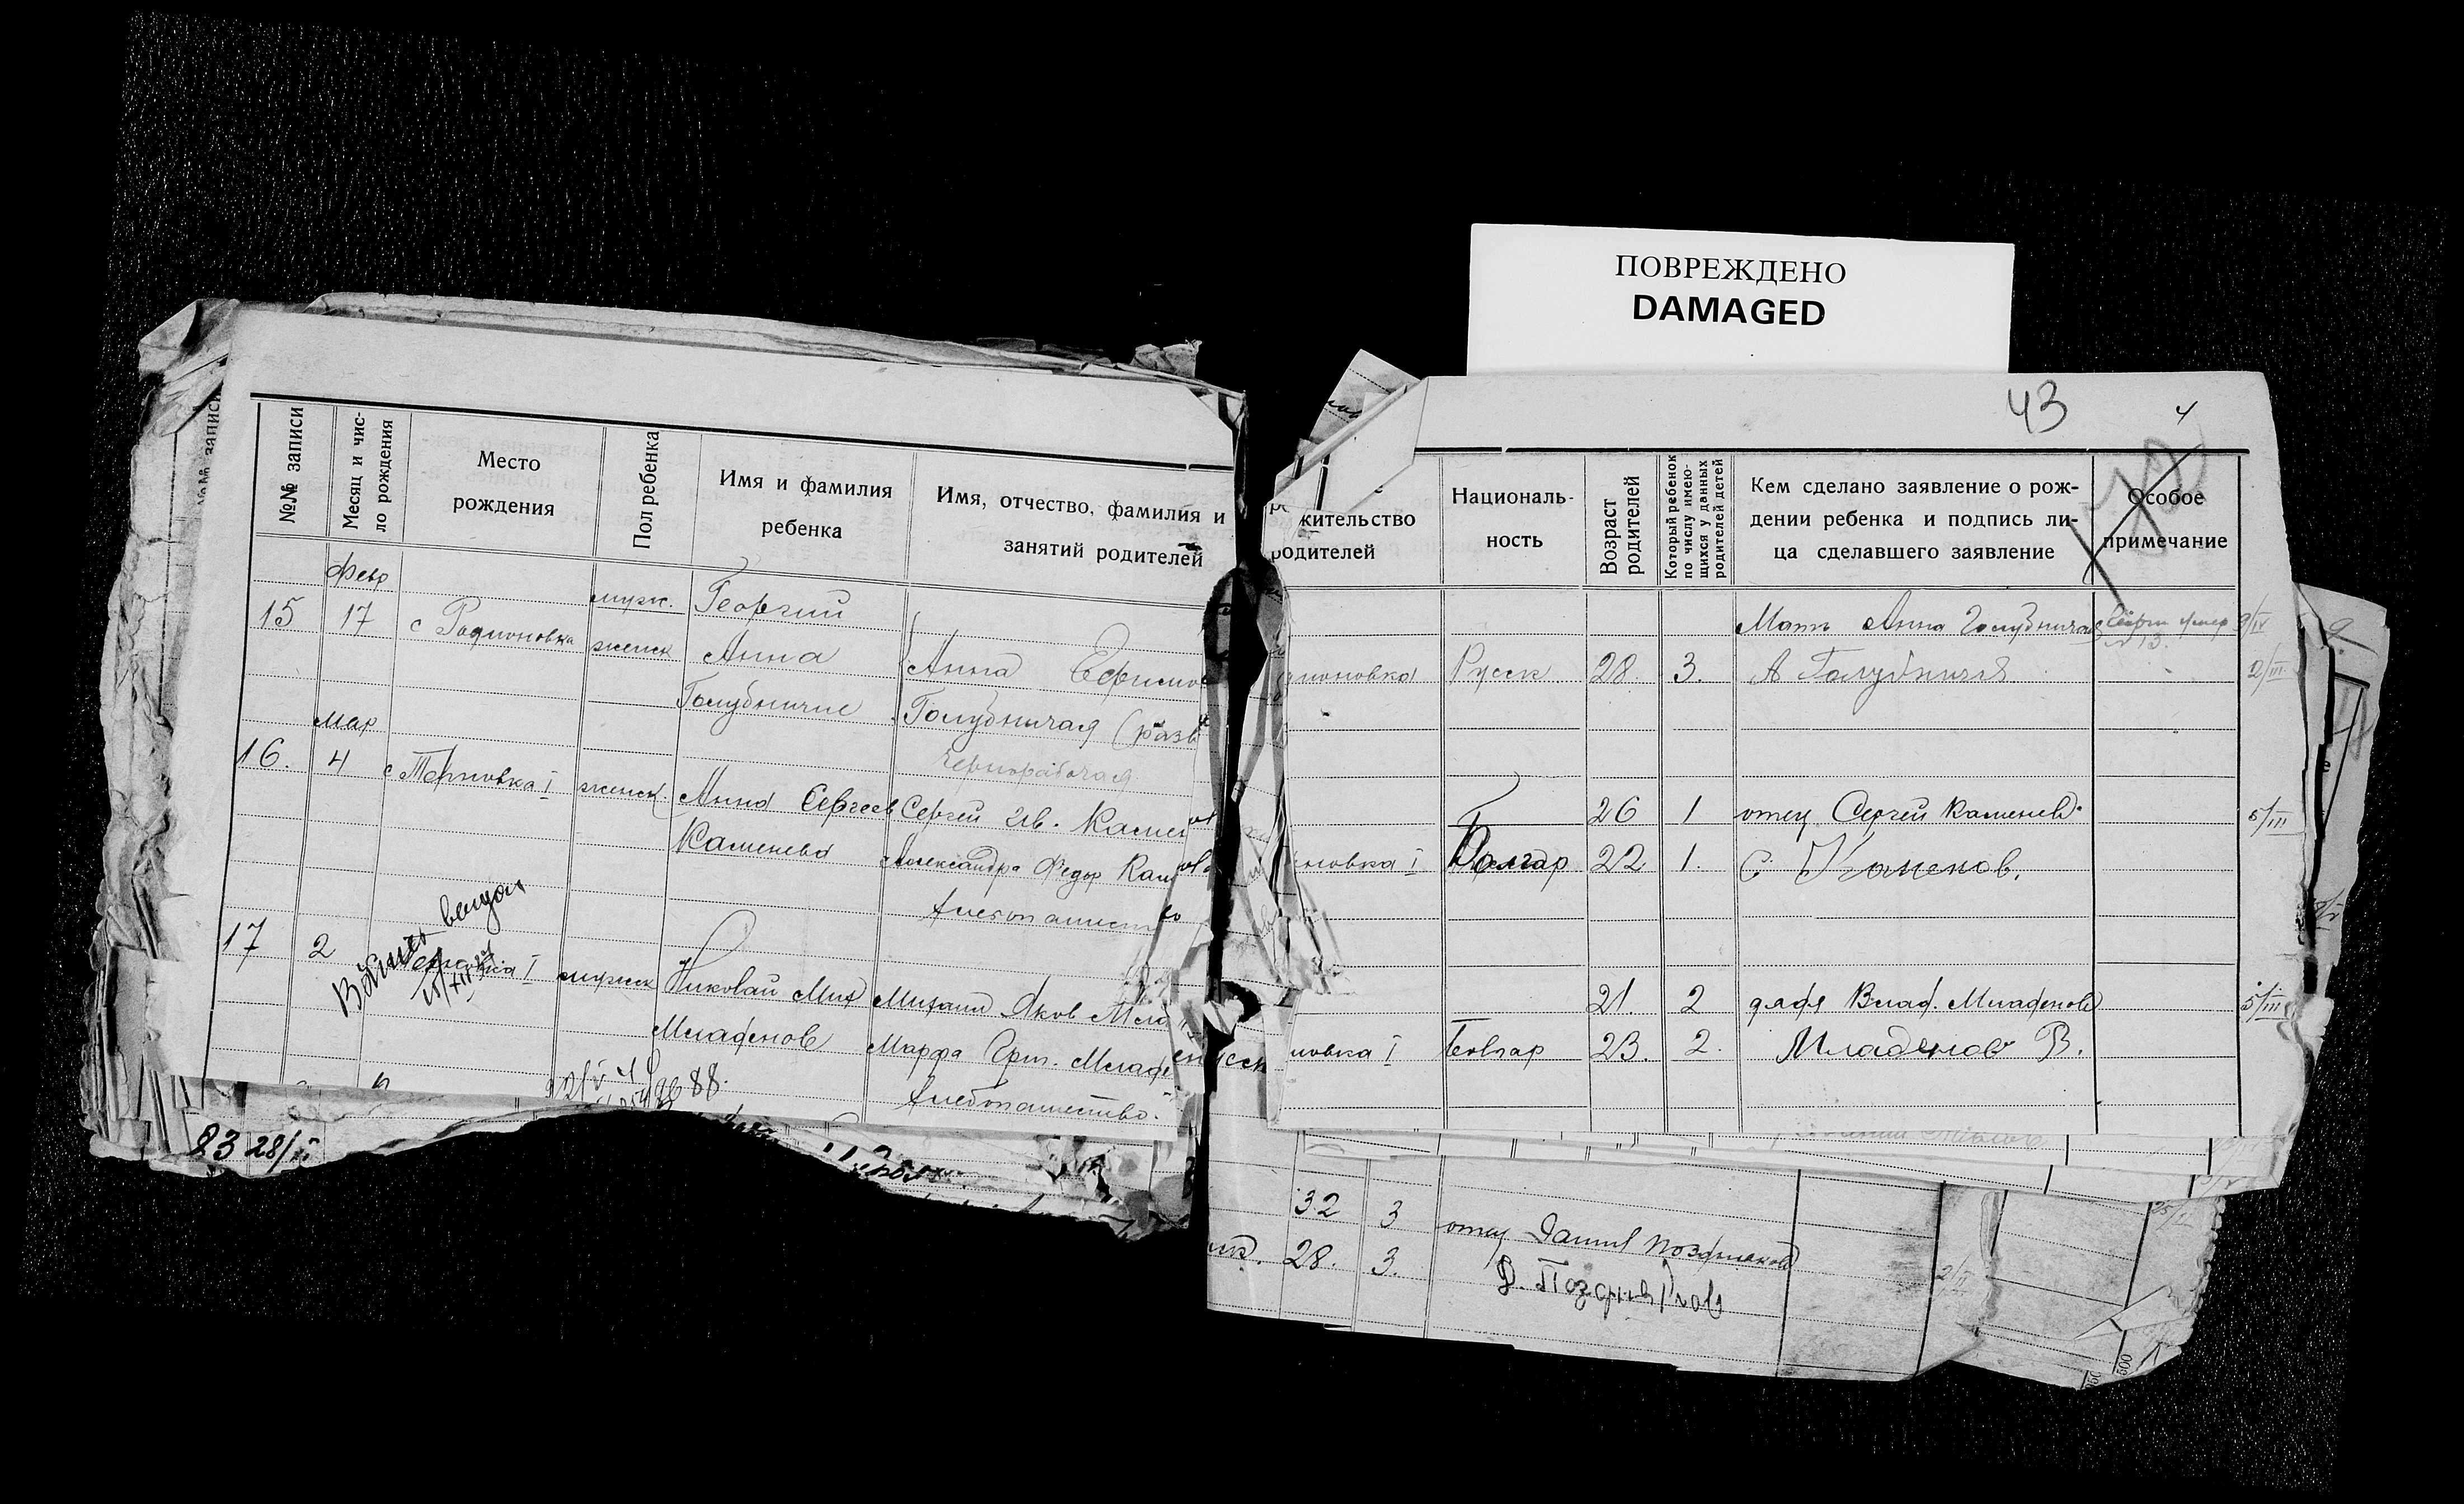 ПОВРЕЖДЕНО
DAMAGED
43
4
№№ записи
Месяц и чис-
ло рождения
Место
рождения
Пол ребенка
Имя и фамилия
ребенка
Имя, отчество, фамилия и
занятий родителей
жительство
родителей
Националь-
ность
Возраст
родителей
Который ребенок
по числу имею-
щихся у данных
родителей детей
Кем сделано заявление о рож-
дении ребенка и подпись ли-
ца сделавшего заявление
Особое
примечание
Февр
15 17 с Родионовка
мужс. Георгий
женск Анна
Голубничие
Анна Ефимов
Голубничая (разв
Чернорабочая
ионовка Русск 28. 3.
Мать Анна Голубничая
А Голубничая
№ 13.
2/III
мар
16. 4 с Терновка I женск. Анна Сергеев
Каменева
Сергей Ив. Камен
Александра Федор Кам
хлебопашество
новка I Болгар
26 1
22 1.
отец Сергей Каменов
С Каменов.
5/III
17 2 Терновка I мужск Николай Мих
Младенов
Михаил Яков Мла
Марфа Григ. Младе
хлебопашество.
новка I Болгар
21. 2
23. 2.
дядя Влад. Младенов
Младенов В.
5/III
88.
83 28/II
32 3
28. 3.
отец Данил Поздняков
Д. Поздняков
2/II